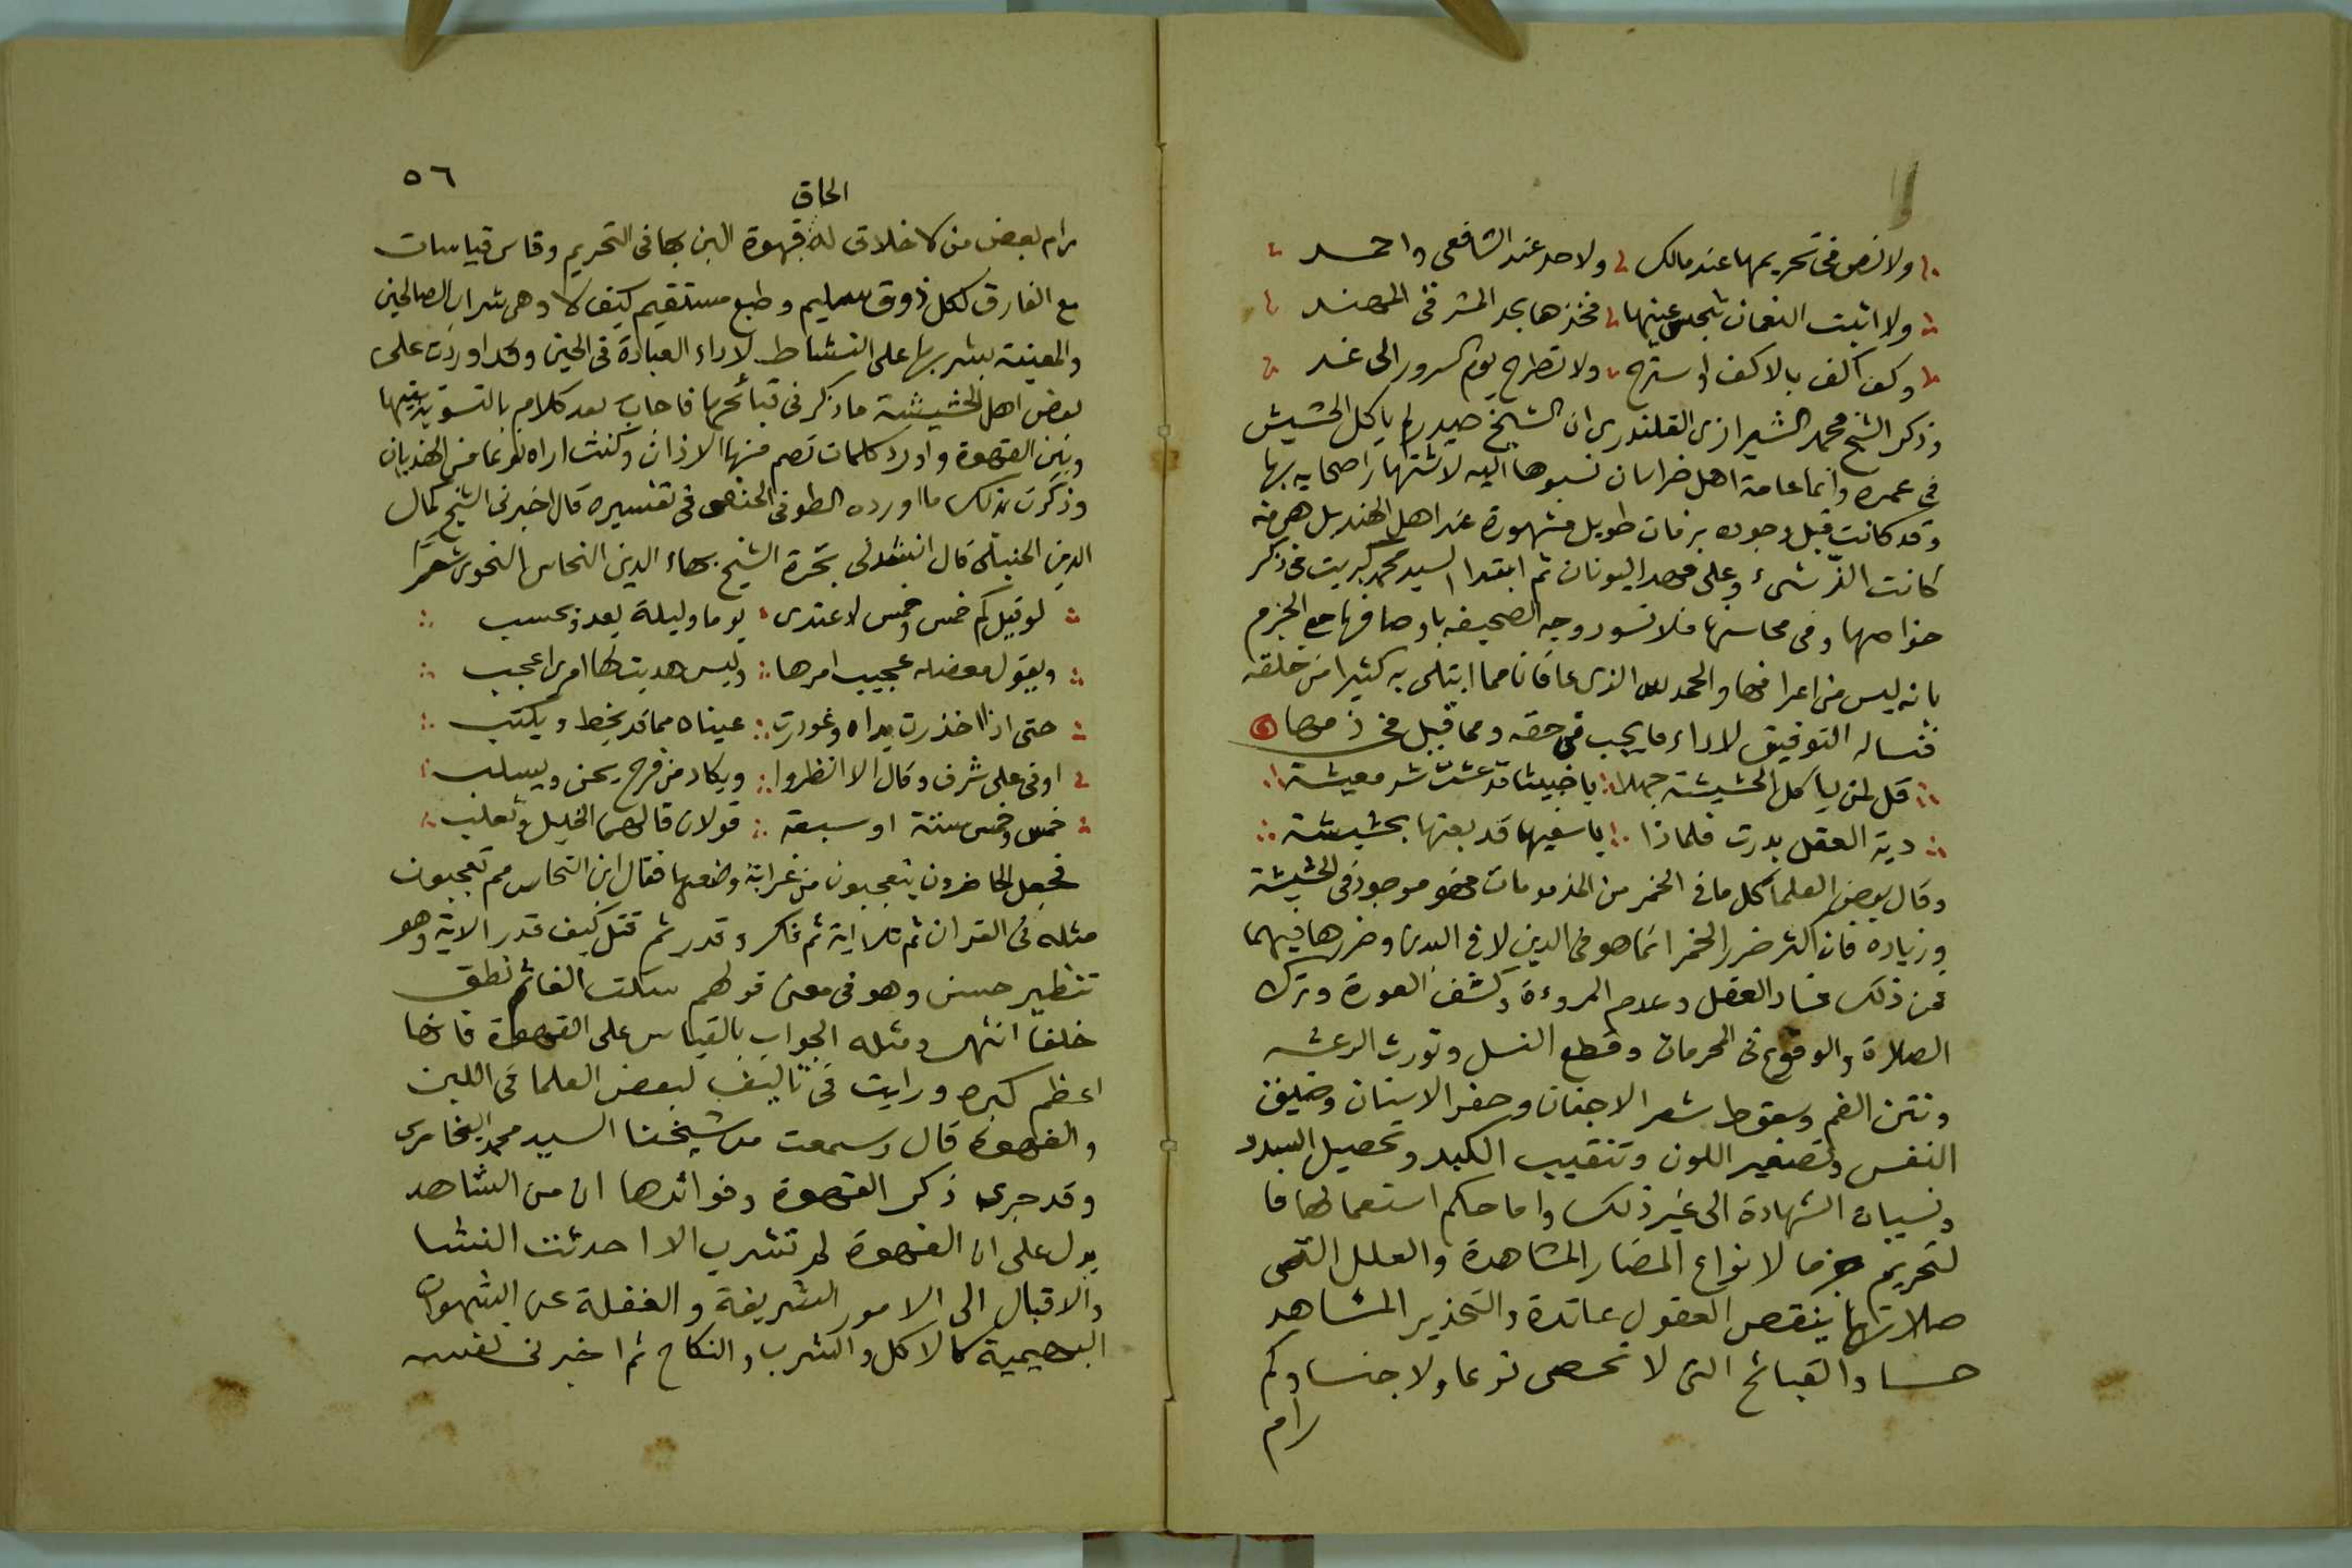 ولا نص في تحريمها عند مالك ولا حد عند الشافعى واحمد
ولا اثبت النعمان تنجس عينها فخذها بحد المشرفى المهند
وكف اكف بالاكف واسترح ولا تطرح يوم السرور الى غد
وذكر الشيخ محمد الشيرازى القلندرى ان الشيخ حيدر لم ياكل الحشيش
فى عمره وانما عامة اهل خراسان نسبوها اليه لاشتهار اصحابه بها
وقد كانت قبل وجوده بزمان طويل مشهورة عند اهل الهند بل هى منه
كانت الذ شىء وعلى عهد اليونان ثم ابتدا السيد محمد كبريت فى ذكر
خواصها وفى محاسنها فلا نسود وجه الصحيفه باوصافها مع الجزم
بانه ليس من اعراضها والحمد لله الذى عافانا مما ابتلى به كثيرا من خلقه
فنساله التوفيق لاداء ما يجب فى حقه ومما قيل فى ذمها
قل لمن ياكل الحشيشة جهلا يا خبيثا قد عشت شر معيشة
دية العقل بدرت فلماذا يا سفيها قد بعتها بحشيشة
وقال بعض العلما كل ما فى الخمر من المذمومات فهو موجود فى الحشيشة
وزيادة فان اكثر ضرر الخمر انما هو فى الدين لا فى البدن وضررها فيهما
فمن ذلك فساد العقل وعدم المروءة وكشف العورة وترك
الصلاة والوقوع فى المحرمات وقطع النسل وتورث الرعشه
ونتن الفم وسقوط شعر الاجفان وحفر الاسنان وضيق
النفس وتصفير اللون وتنقيب الكبد وتحصيل السدد
ونسيان الشهادة الى غير ذلك واما حكم استعمالها فا
لتحريم جزما لانواع المضار المشاهدة والعلل التى
صلاتها ينقص العقول عائدة والتحذير المشاهد
حسا والقبائح التى لا تحصى نوعا ولا جنسا وكم
رام
٥٦
الحاق
رام بعض من لا خلاق له قهوة البن بها فى التحريم وقاس قياسات
مع الفارق لكل ذوق سليم وطبع مستقيم كيف لا وهى شراب الصالحين
والمعينة بشربها على النشاط لاداء العبادة فى الحين وقد اوردت على
بعض اهل الحشيشة ما ذكر فى قبائحها فاجاب بعد كلام بالتسوية بينها
وبين القهوة واورد كلمات تصم منها الاذان وكنت اراه نوعا من الهذيان
وذكرت بذلك ما اورده الطوفى الحنفى فى تفسيره قال اخبرنى الشيخ كمال
الدين الحنبلى قال انشدنى بحرة الشيخ بهاء الدين النحاس النحوى شعرًا
لو قيل كم خمس وخمس لاغتدى يوما وليلة يعد ويحسب
ويقول معضله عجيب امرها وليس هديت لها امرى اعجب
حتى اذا خذرت يداه وغورت عيناه مما قد يخط ويكتب
اوفى على شرف وقال الا انظروا ويكاد من فرح يجن ويسلب
خمس وخمس ستة او سبعة قولان قالهما الخليل وثعلب
فجعل الحاضرون يتعجبون من غرابة وضعها فقال ابن النحاس مم تعجبون
مثله فى القران ثم تلا اية ثم فكر وقدر ثم قتل كيف قدر الاية وهو
تنظير حسن وهو فى معنى قولهم سكت الفا ثم نطق
خلفا انتهى ومثله الجواب بالقياس على القهوة فانها
اعظم كبره ورايت فى تاليف لبعض العلما فى اللبن
والقهوة قال وسمعت من شيخنا السيد محمد البخارى
وقد جرى ذكر القهوة وفوائدها ان من الشاهد
يدل على ان القهوة لم تشرب الا احدثت النشا
والاقبال الى الامور الشريفة والغفلة عن الشهوات
البهيمية كالاكل والشرب والنكاح ثم اخبر فى نفسه